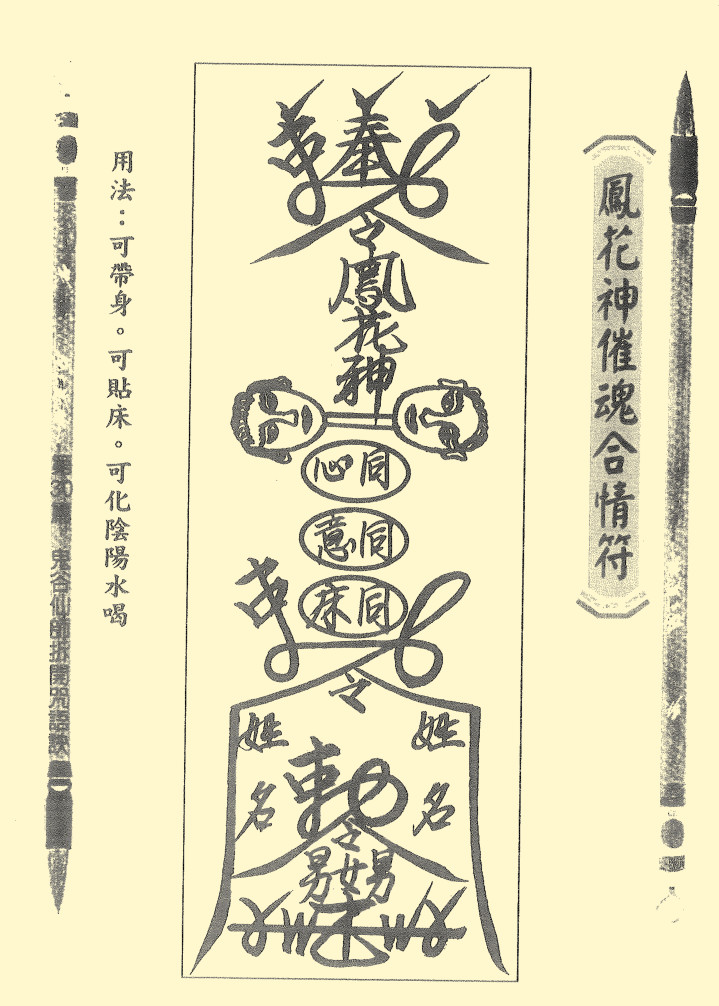 鳳花神催魂合情符
奉
令
鳳花神
同心
同意
同床
令
姓名
姓名
勅
令
男女男
用法：可帶身。可貼床。可化陰陽水喝
鬼谷仙師拆開咒語訣